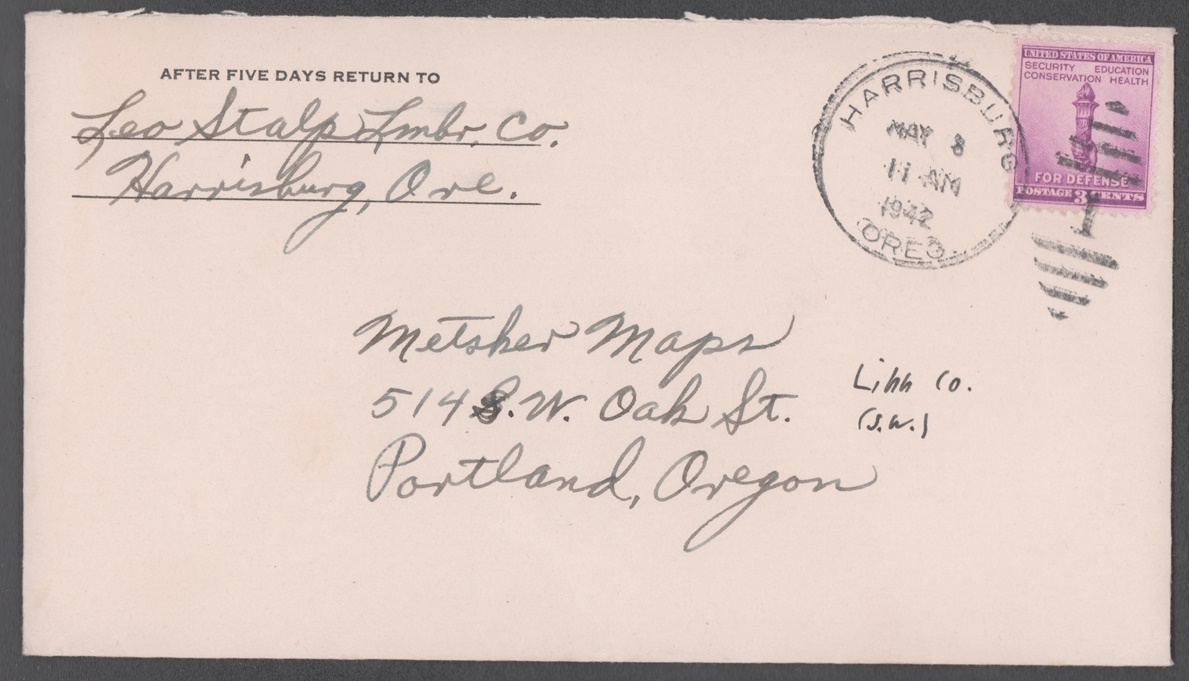 AFTER FIVE DAYS RETURN TO
Leo Stalp Lmbr. Co.
Harrisburg, Ore.
HARRISBURG
MAY 8
11 AM
1942
OREG
UNITED STATES OF AMERICA
SECURITY EDUCATION
CONSERVATION HEALTH
FOR DEFENSE
POSTAGE 3 CENTS
Metsker Maps
514 S.W. Oak St.
Portland, Oregon
Linn Co.
(S.W.)